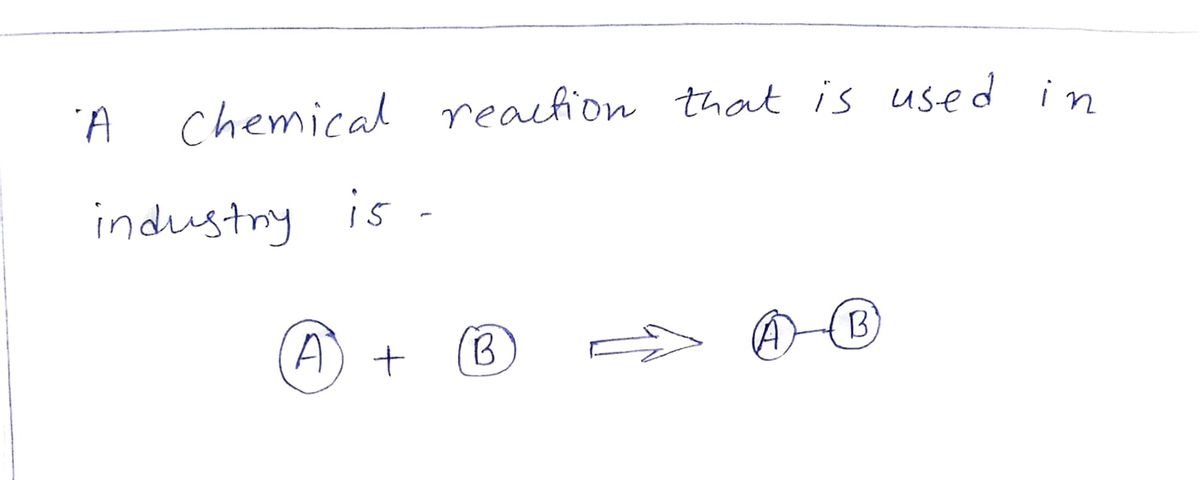 A chemical reaction that is used in
industry is -
A + B ⇒ A-B